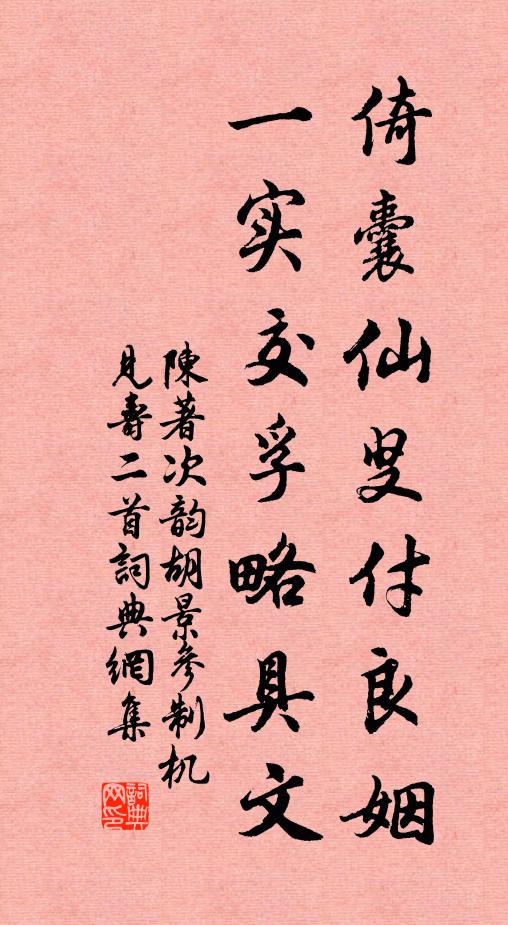 倚囊仙叟付良姻
一实交孚略具文
陳著次韵胡景參制机
見壽二首詞典網集
詞典网印